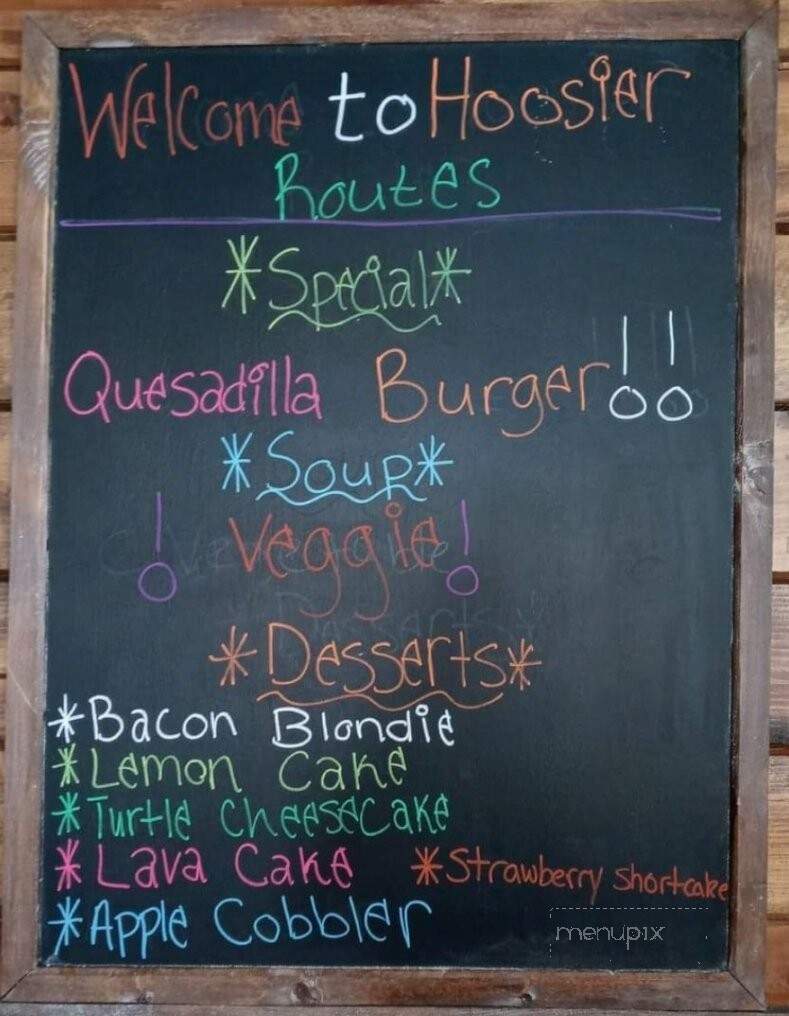 Welcome to Hoosier
Routes
*Special*
Quesadilla Burger!!
*Soup*
!Veggie!
*Desserts*
*Bacon Blondie
*Lemon Cake
*Turtle Cheesecake
*Lava Cake *Strawberry Shortcake
*Apple Cobbler
menupix